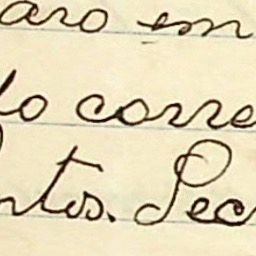 aro em
do corre
ntos. Sec